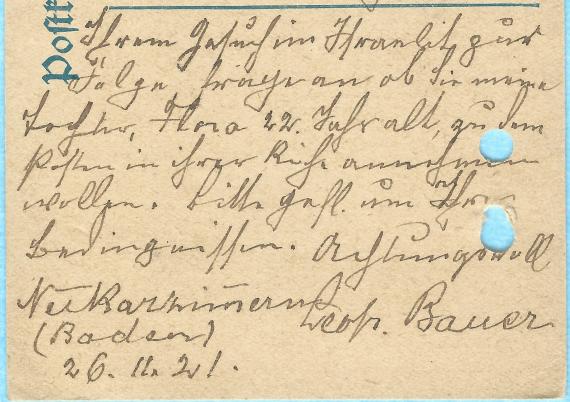 Postk
Ihrem Gesuch im Israelit zur
Folge, frage an ob Sie meine
Tochter, Flora 22. Jahr alt, zu dem
Posten in ihrer Küche annehmen
wollen. Bitte gefl. um Ihre
Bedingnissen. Achtungsvoll
Neckarzimmern Leop. Bauer
(Baden)
26. 11. 21.